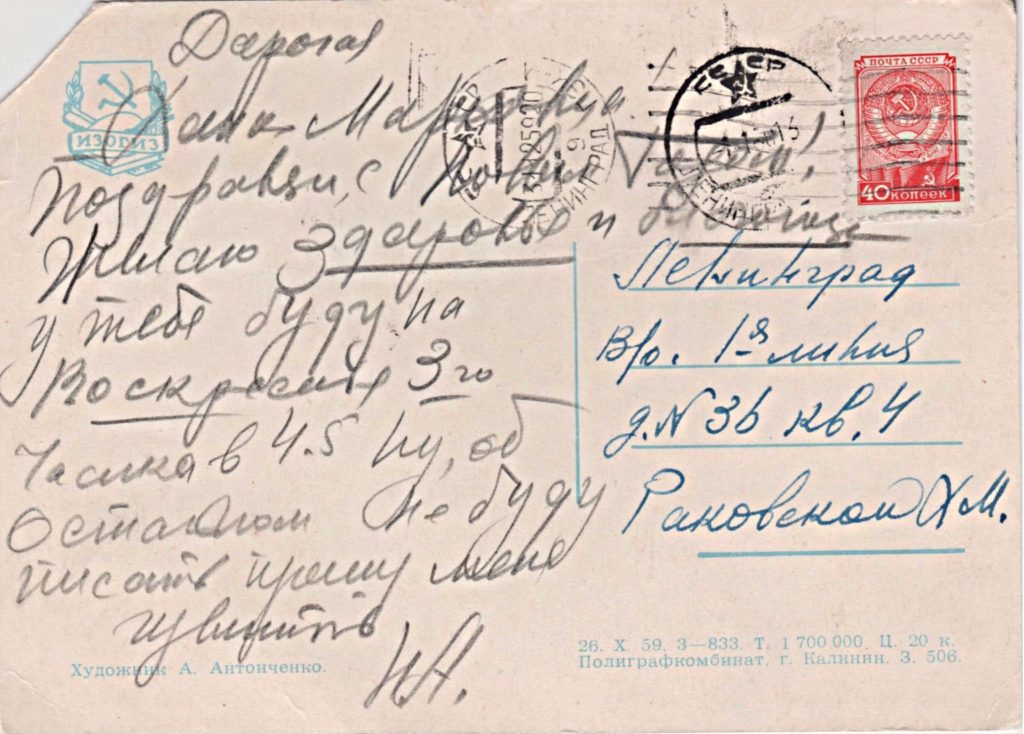 Дарогая
Хана Марковна
поздравци, с Новым Годом!
Желаю Здаровье и
у тебе буду на
Воскресение 3го
часика в 4.5 ну, об
Остальном не буду
писать прошу мене
извинить
Н.А.
ИЗОГИЗ
СССР
ЛЕНИНГРАД
СССР
ЛЕНИНГРАД
ПОЧТА СССР
40 КОПЕЕК
Ленинград
В/о. 1-я линия
д. N 36 кв. 4
Раковской Х М.
Художник А. Антонченко.
26. X 59. З—833. Т. 1 700 000. Ц. 20 к.
Полиграфкомбинат, г. Калинин. З. 506.